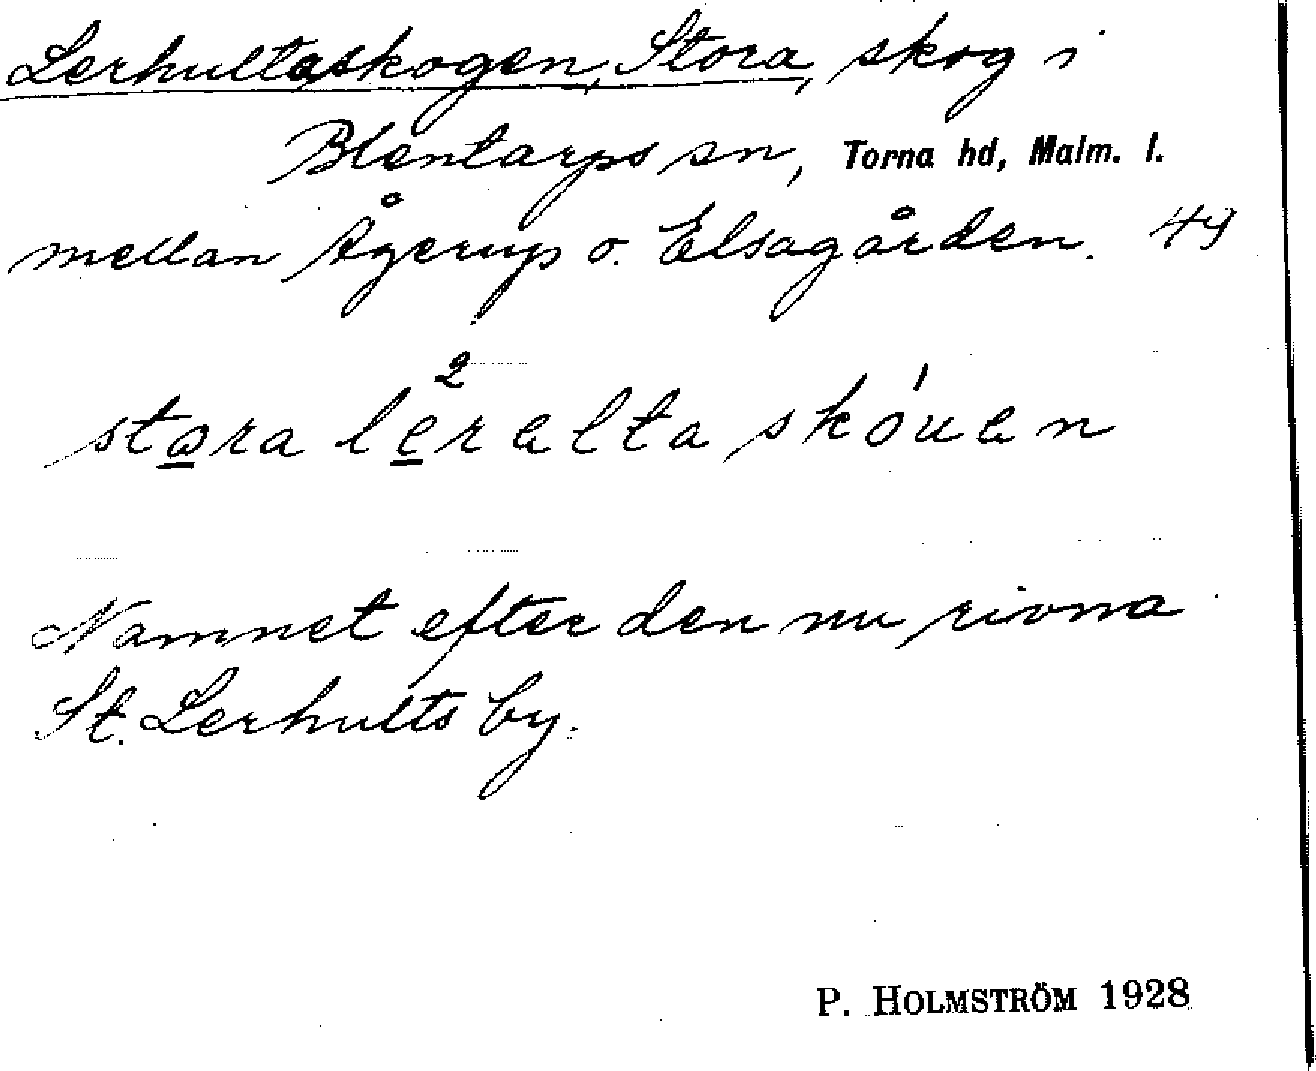 Lerhultaskogen, Stora, skog i
Blentarps sn, Torna hd, Malm. l.
mellan Ågerup o. Elsagården. 49
2
stora leralta skóuen
Namnet efter den nu rivna
St. Lerhults by.
P. HOLMSTRÖM 1928